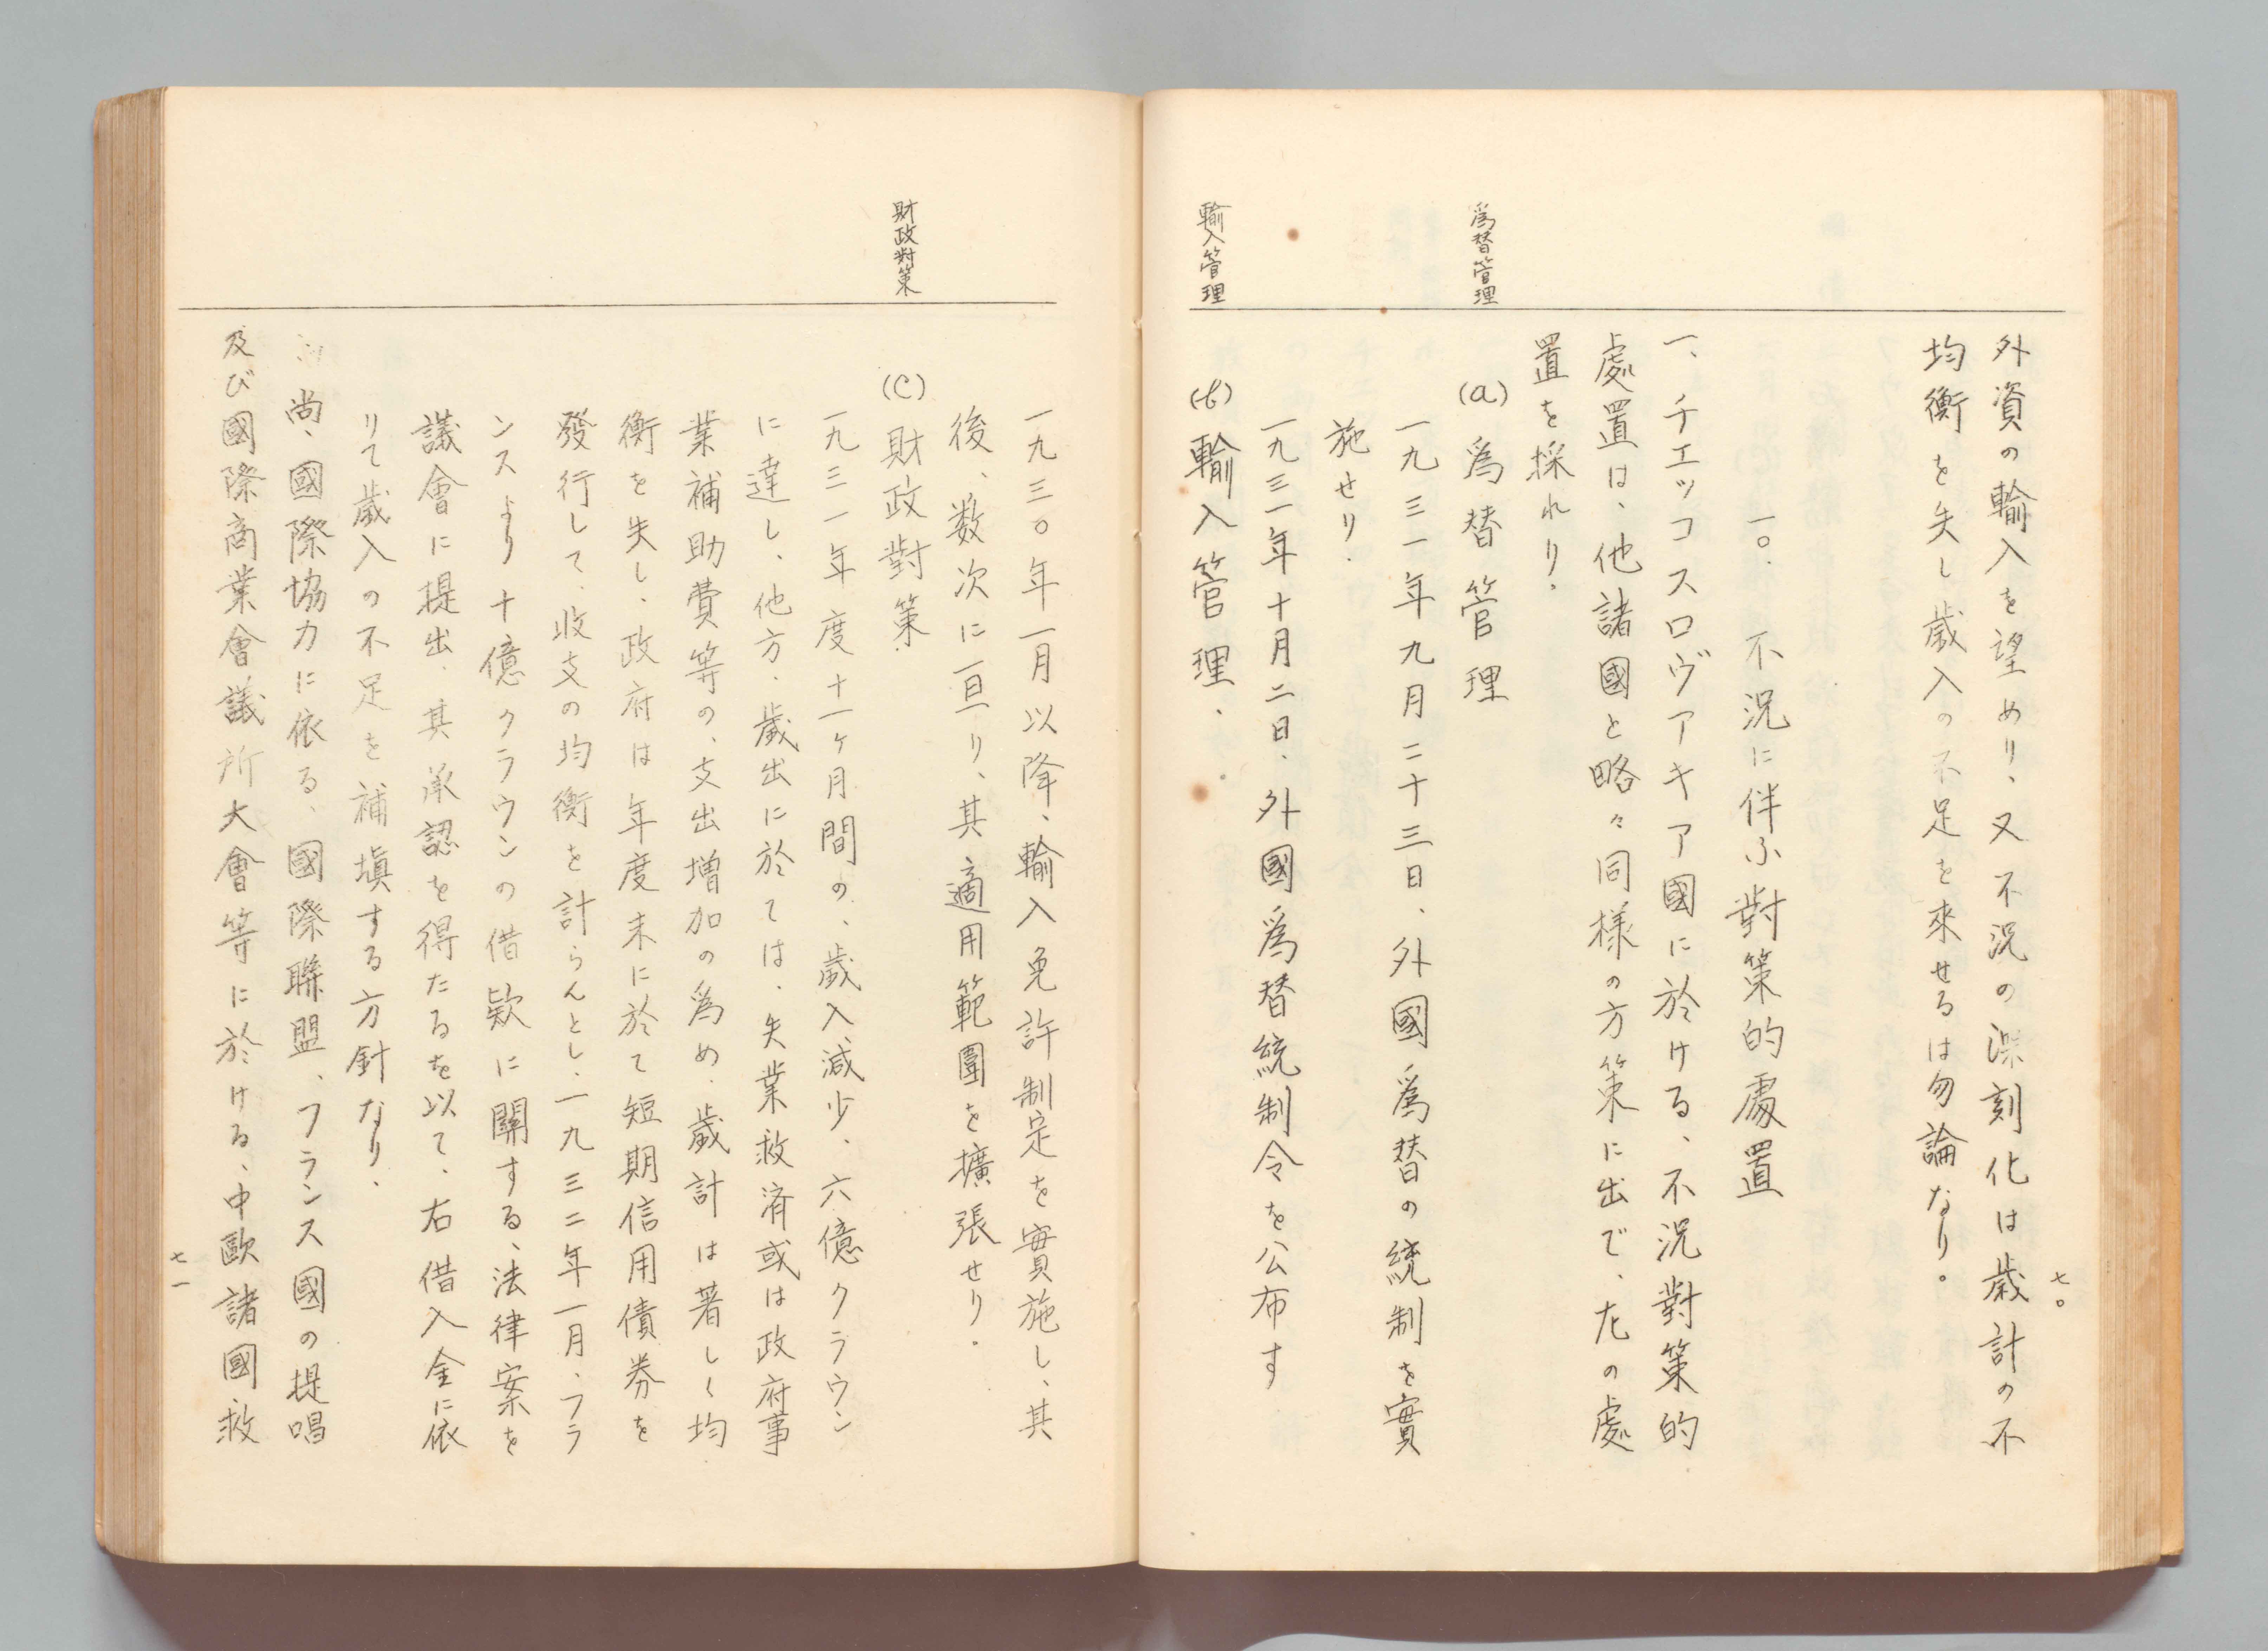 七〇
外資の輸入を望めり、又不況の深刻化は歳計の不
均衡を失し歳入の不足を來せるは勿論なり。
一〇. 不況に伴ふ對策的處置
一、チエッコスロヴアキア國に於ける、不況對策的
處置は、他諸國と略々同様の方策に出で、左の處
置を採れり.
爲替管理
(a) 爲替管理
一九三一年九月二十三日、外國爲替の統制を實
施せり.
一九三一年十月二日、外國爲替統制令を公布す
輸入管理
(b) 輸入管理.
一九三〇年一月以降、輸入免許制定を實施し、其
後、数次に亘り、其適用範圍を擴張せり.
財政對策
(C) 財政對策.
一九三一年度十一ヶ月間の、歳入減少、六億クラウン
に達し、他方、歳出に於ては、失業救済或は政府事
業補助費等の、支出増加の爲め、歳計は著しく均
衡を失し、政府は年度末に於て短期信用債券を
發行して、收支の均衡を計らんとし、一九三二年一月、フラ
ンスより十億クラウンの借欵に關する、法律案を
議會に提出、其承認を得たるを以て、右借入金に依
りて歳入の不足を補塡する方針なり.
尚、國際協力に依る、國際聯盟、フランス國の提唱
及び國際商業會議所大會等に於ける、中歐諸國救
七一